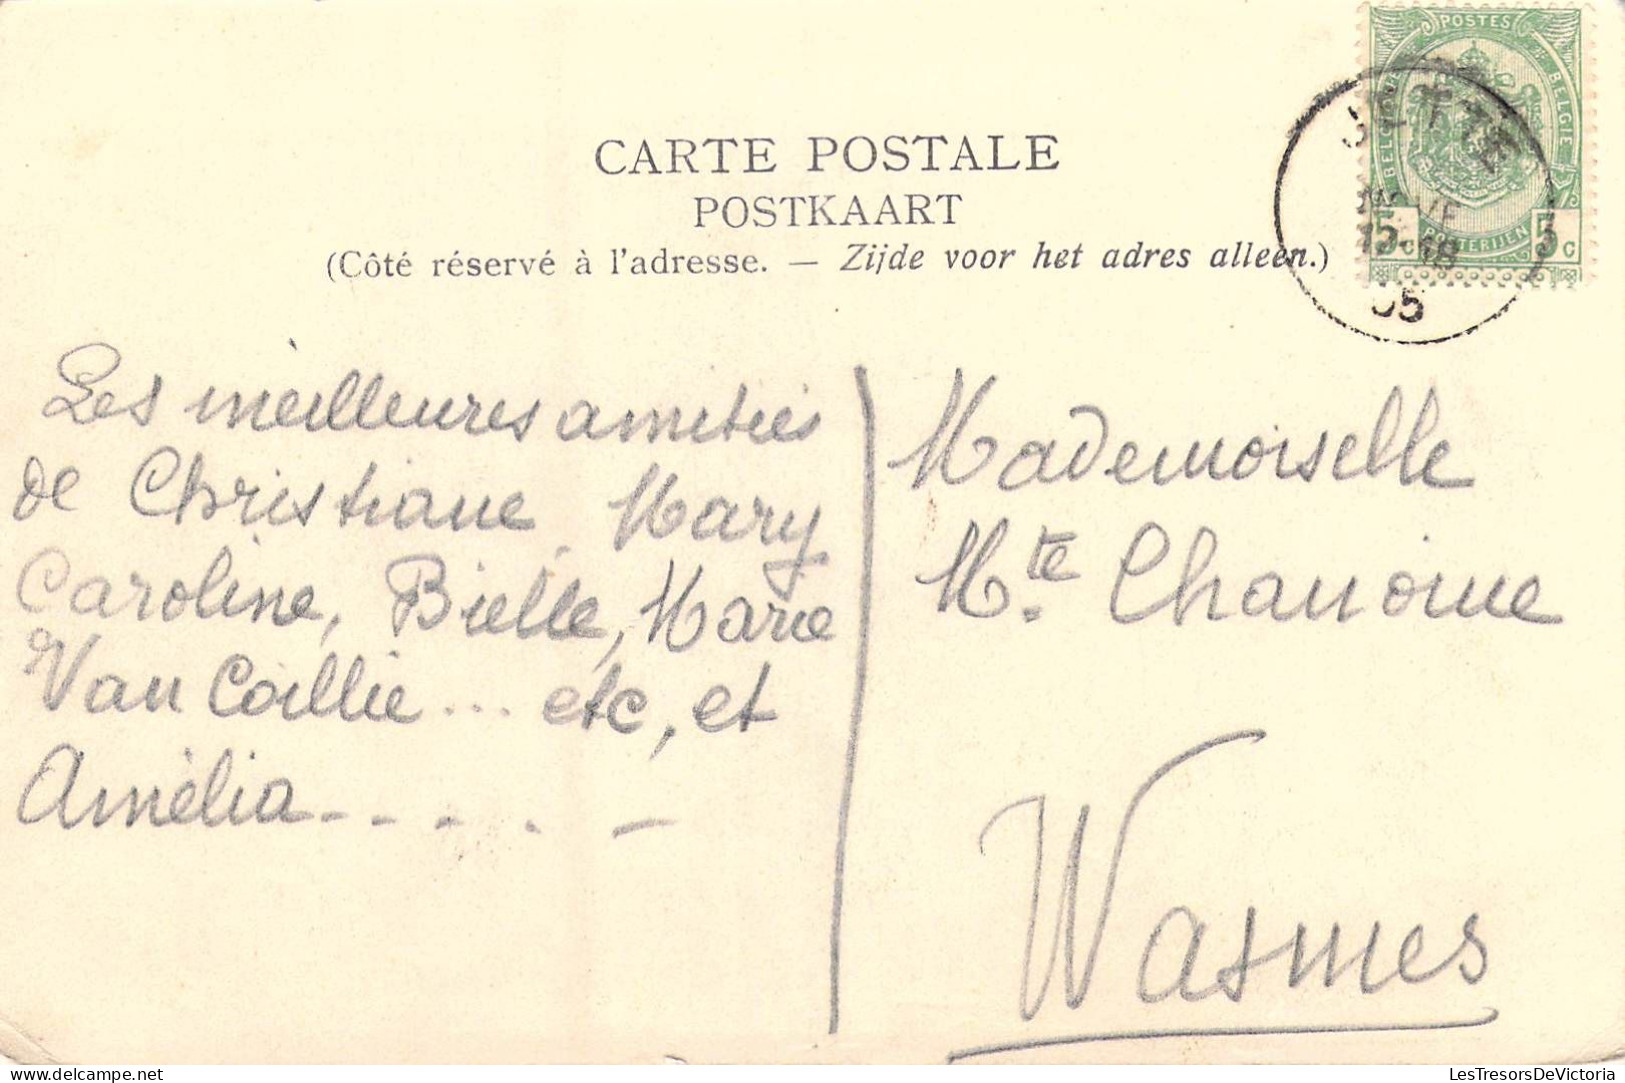 POSTES
BELGIQUE
BELGIE
5c POSTERIJEN 5c
JETTE
15-18
05
CARTE POSTALE
POSTKAART
(Côté réservé à l'adresse. — Zijde voor het adres alleen.)
Les meilleures amitiés
de Christiane Mary
Caroline, Bielle, Marie
Van Caillie... etc, et
Amélia - - - . . -
Mademoiselle
Mte. Chanoine
Wasmes
LesTresorsDeVictoria - delcampe.net
LesTresorsDeVictoria